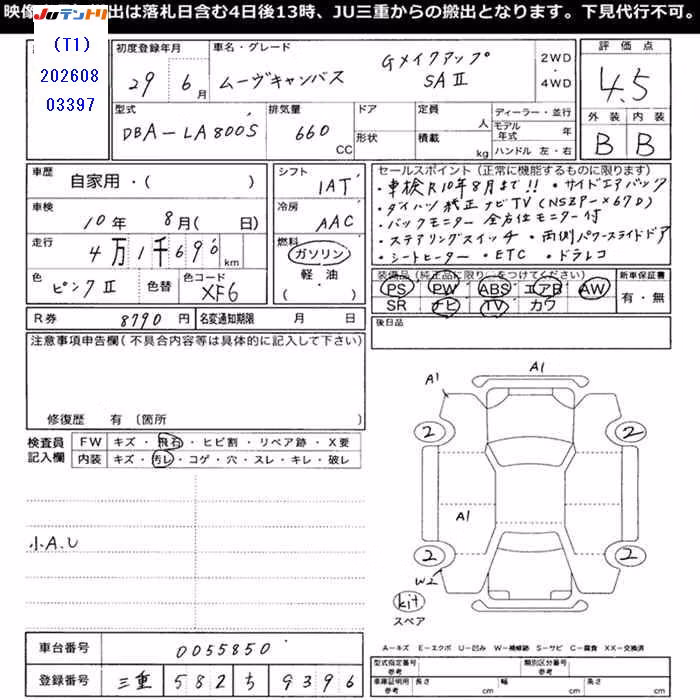 映像 出は落札日含む4日後13時、JU三重からの搬出となります。下見代行不可。
JUテントリ
(T1)
202608
03397
初度登録年月
29年 6月
車名・グレード
ムーヴキャンバス
Gメイクアップ
SAⅡ
2WD
・
4WD
評価点
4.5
外装 内装
B B
型式
DBA-LA800S
排気量
660 CC
ドア
形状
定員 人
積載 kg
ディーラー・並行
モデル年式 年
ハンドル 左・右
車歴
自家用・( )
車検
10年 8月( 日)
走行
4万1千690km
色
ピンクⅡ
色替
色コード
XF6
シフト
IAT
冷房
AAC
燃料
ガソリン
軽油
( )
セールスポイント(正常に機能するものに限ります)
・車検R10年8月まで!! ・サイドエアバッグ
・ダイハツ純正ナビTV(NSZP-X67D)
・バックモニター 全方位モニター付
・ステアリングスイッチ ・両側パワースライドドア
・シートヒーター ・ETC ・ドラレコ
装備品(純正品に限り○をつけてください)
PS PW ABS エアB AW
SR ナビ TV カワ
新車保証書
有・無
後日品
R券 8790円
名変通知期限 月 日
注意事項申告欄(不具合内容等は具体的に記入して下さい)
修復歴 有 〔箇所 〕
検査員
記入欄
FW キズ・飛石・ヒビ割・リペア跡・X要
内装 キズ・汚レ・コゲ・穴・スレ・キレ・破レ
小A.U
A1
A1
2
2
A1
2
2
W2
kit
スペア
A-キズ E-エクボ U-凹み W-補修跡 S-サビ C-腐食 XX-交換済
車台番号 0055850
登録番号 三重 582 ち 9396
型式指定番号
参考
類別区分番号
参考
車庫証明用
参考
長さ cm
幅 cm
高さ cm